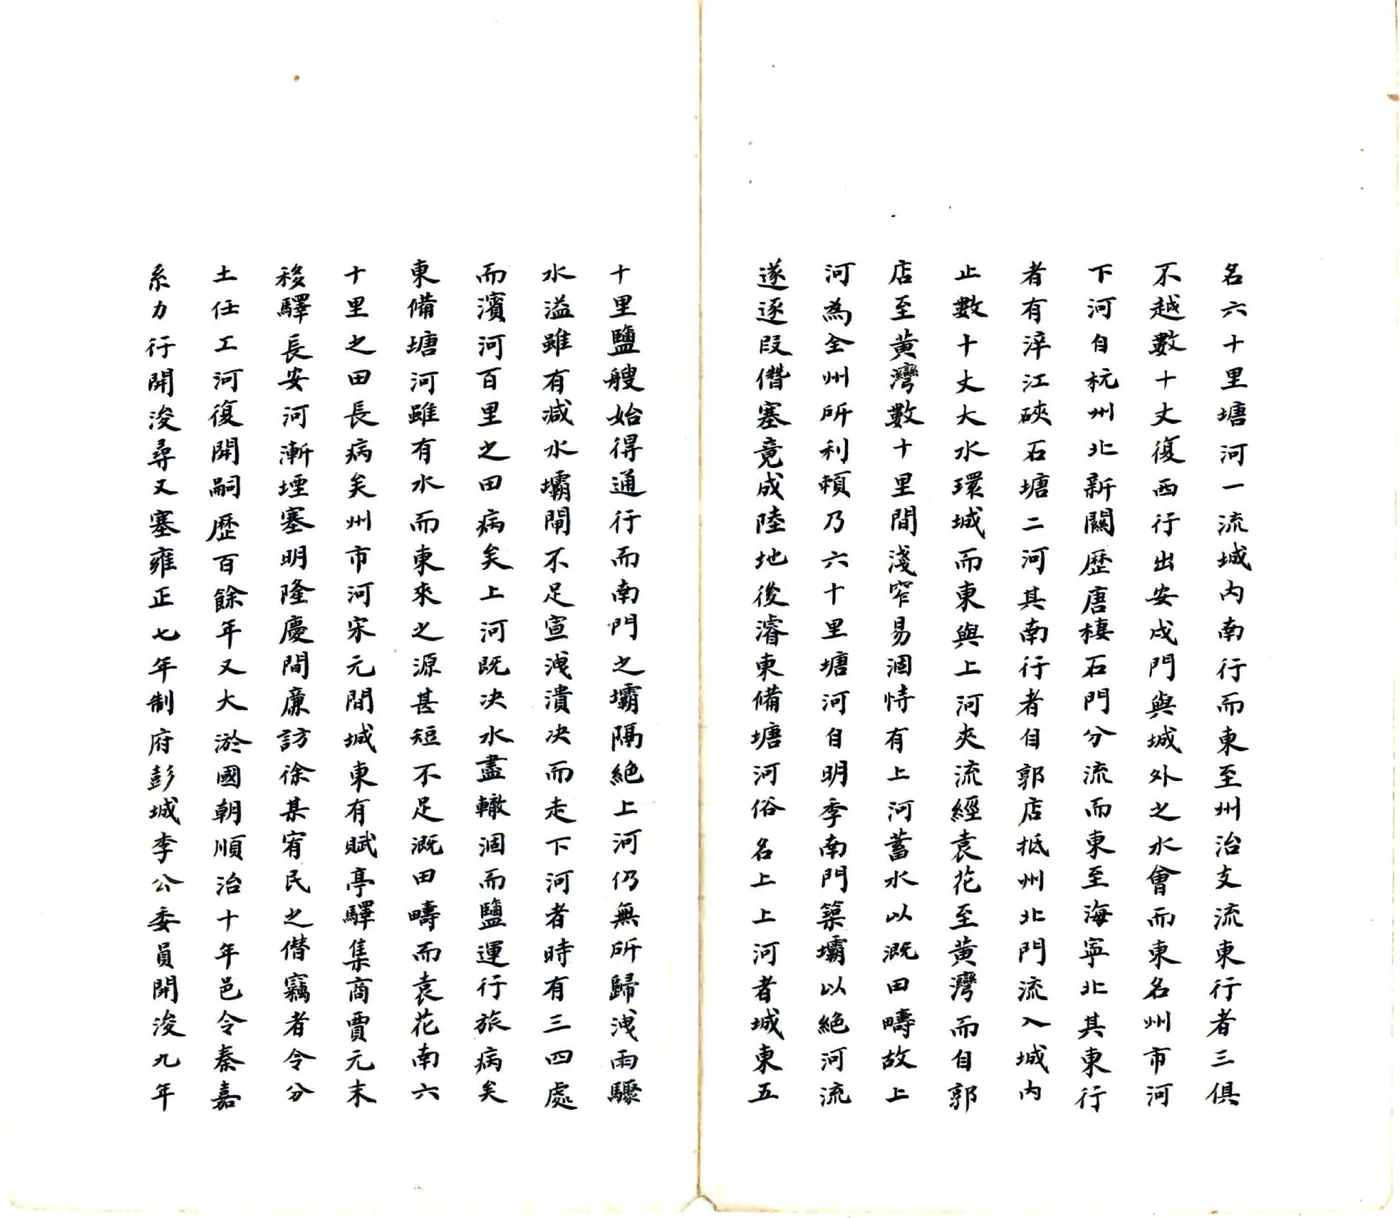 名六十里塘河一流城内南行而東至州治支流東行者三俱
不越數十丈復西行出安戍門與城外之水會而東名州市河
下河自杭州北新關歷唐棲石門分流而東至海寧北其東行
者有淬江硤石塘二河其南行者自郭店抵州北門流入城内
止數十丈大水環城而東與上河夾流經袁花至黃灣而自郭
店至黃灣數十里間淺窄易涸恃有上河蓄水以溉田疇故上
河為全州所利賴乃六十里塘河自明季南門築壩以絕河流
遂逐段僭塞竟成陸地後濬東備塘河俗名上上河者城東五
十里鹽艘始得通行而南門之壩隔絕上河仍無所歸洩雨驟
水溢雖有減水壩閘不足宣洩潰决而走下河者時有三四處
而濱河百里之田病矣上河既决水盡轍涸而鹽運行旅病矣
東備塘河雖有水而東來之源甚短不足溉田疇而袁花南六
十里之田長病矣州市河宋元間城東有賦亭驛集商賈元末
移驛長安河漸堙塞明隆慶間廉訪徐某宥民之僭竊者令分
土任工河復開嗣歷百餘年又大淤國朝順治十年邑令秦嘉
系力行開浚尋又塞雍正七年制府彭城李公委員開浚九年